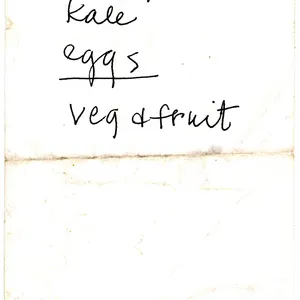 kale
eggs
veg & fruit